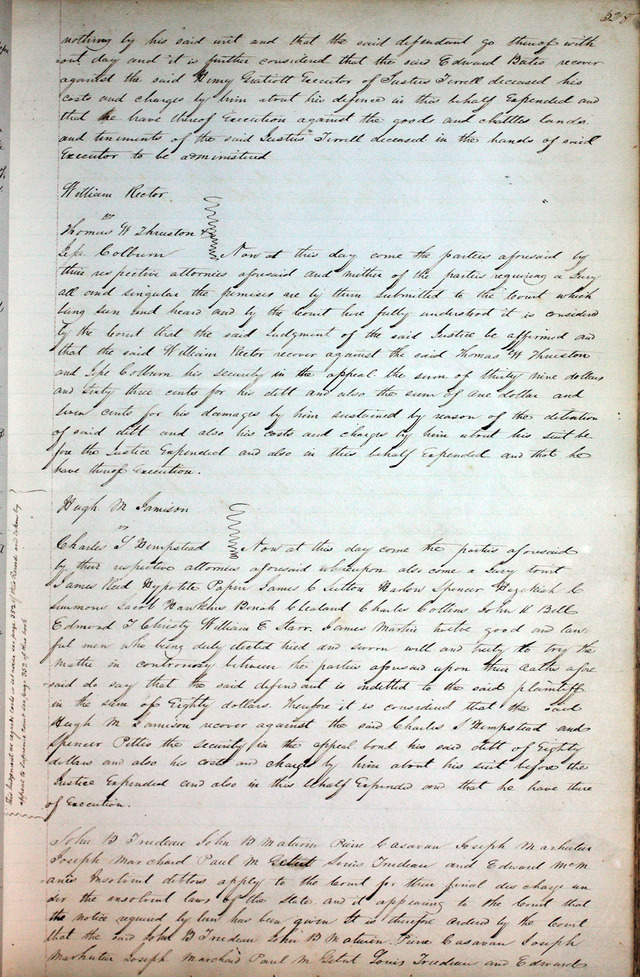 nothing by his said writ and that the said defendant go thereof with
out day and it is further considered that the said Edward Bates recover
against the said Henry Gratiott Executor of Justus Terrell deceased his
costs and charges by him about his defence in this behalf Expended and
that he have thereof Execution against the goods and chattles lands
and tenements of the said Justus Terrell deceased in the hands of said
Executor to be administered
William Rector
vs
Thomas W Thruston &
Jepe Colburn Now at this day come the parties aforesaid by
their respective attornies aforesaid and neither of the parties requiring a Jury
all and singular the premises are by them submitted to the Court which
being seen and heard and by the Court here fully understood it is considered
by the Court that the said Judgment of the said Justice be affirmed and
that the said William Rector recover against the said Thomas W Thruston
and Jepe Colburn his security in the appeal the sum of thirty nine dollars
and sixty three cents for his debt and also the sum of one dollar and
seven cents for his damages by him sustained by reason of the detention
of said debt and also his costs and charges by him about his suit be
fore the Justice Expended and also in this behalf Expended and that he
have thereof Execution.
Hugh M Jamison
vs
Charles S Hempstead Now at this day come the parties aforesaid
by their respective attornies aforesaid whereupon also come a Jury towit
James Reed Hypolite Papin James C Sutton Harlow Spencer Hezekiah C
Simmons Jacob Hawkins Benah Clealand Charles Collins John H Bell
Edmond T Christy William E Starr. James Martin twelve good and law
ful men who being duly elected tried and sworn well and truly to try the
matter in controversy between the parties aforesaid upon their Oaths afore
said do say that the said defendant is indebted to the said plaintiff
in the sum of Eighty dollars. Therefore it is considered that the said
Hugh M Jamison recover against the said Charles S Hempstead and
Spencer Pettis the security in the appeal bond his said debt of Eighty
dollars and also his costs and charges by him about his suit before the
Justice Expended and also in this behalf Expended and that he have there
of Execution.
this Judgment as regards costs see page 352 of this Record and taken by
appeal to Supreme Court see page 352 of this book
John B Trudeau John B Maturin Piere Casavan Joseph Marhuten
Joseph Marchard Paul M Gebert Louis Trudeau and Edward McM
anis Insolvent debtors apply to the Court for their final discharge un
der the insolvent laws of the State and it appearing to the Court that
the notice required by law has been given It is therefore ordered by the Court
that the said John B Trudeau John B Maturin. Piere Casavan Joseph
Marhuten Joseph Marchard Paul M Gebert Louis Trudeau and Edward